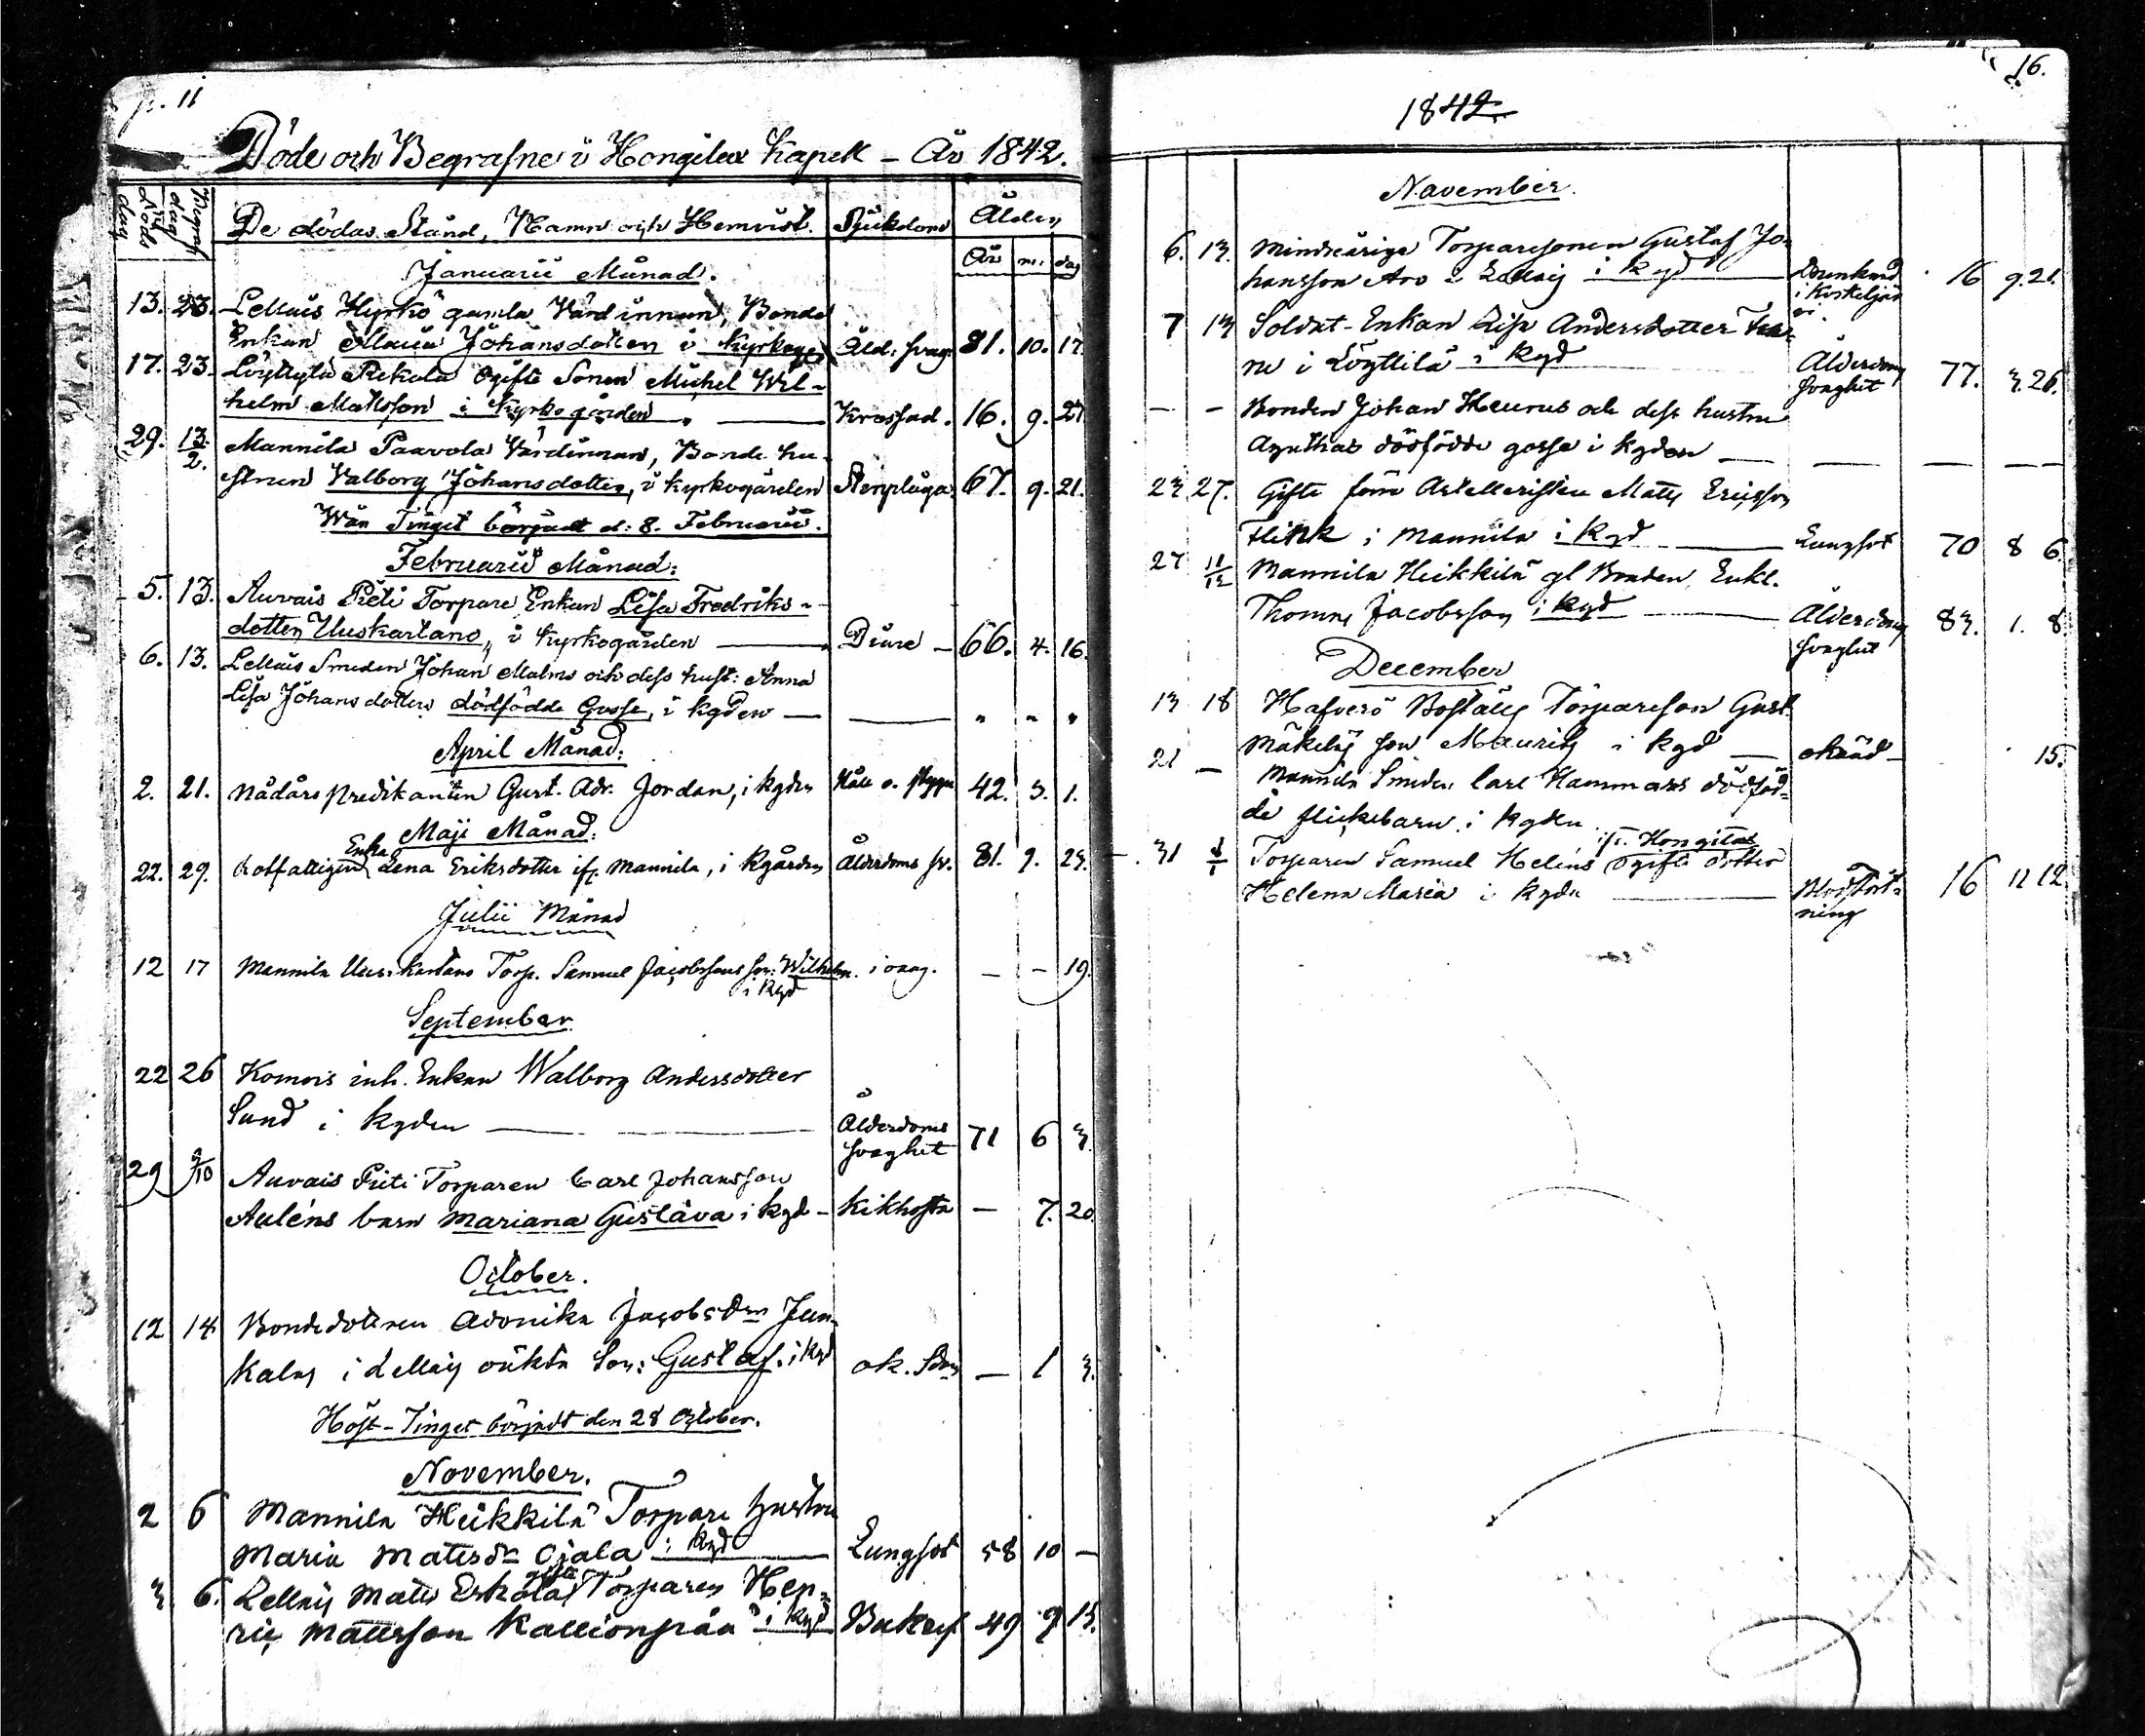 p. 11
Döde och Begrafne i Hongilax Kapell – År 1842.
De dödas Stånd, Namn och Hemvist. Sjukdom Ålder
År m. dag
Januarii Månad.
13. 23. Lellais Hyrkö gamla Värdinnan, Bonde
Enkan Maria Johansdotter i Kyrkogd Åld: svag 81. 10. 17.
17. 23. Löyttylä Pekola Ogifte Sonen Michel Wil-
helm Mattsson i Kyrkogården Krossad. 16. 9. 27
29. 13/2. Mannila Paavola Värdinnan, Bonde hu-
strun Valborg Johansdotter, i Kyrkogården Stenplåga 67. 9. 21.
Wår Tinget börjadt d: 8. Februarii.
Februarii Månad:
5. 13. Auvais Pieti Torpare Enkan Lisa Fredriks-
dotter Uuskartano, i Kyrkogården 66. 4. 16.
6. 13. Lellais Smeden Johan Malms och dess hust: Anna
Lisa Johansdotters dödfödde Gosse, i kgden — — " " "
April Månad:
2. 21. Nådårs predikanten Gust. Adr. Jordan, i kgden Håll o. stygn 42. 3. 1.
Maji Månad:
22. 29. Rotfattigen Enka Lena Eriksdotter ifr. Mannila, i Kgården Ålderdoms sv. 81. 9. 23.
Julii Månad
12 17 Mannila Uusikartano Torp. Samuel Jacobssons son: Wilhelm. — — 19.
i kgd
September
22 26 Komois inh. Enkan Walborg Andersdotter
Sund i kgden — Ålderdoms
svaghet 71 6 3.
29 2/10 Auvais Pieti Torparen Carl Johansson
Auléns barn Mariana Gustava i kgd – Kikhosta — 7. 20
October.
12 14 Bondedottren Jacobsdn Jun-
kalas i Lellais oäkta Son: Gustaf. i kgd ok. Sdom — 1 3.
Höst-Tinget börjadt den 28 October.
November.
2 6 Mannila Heikkilä Torpare hustru
Maria Matsdn Ojala i kgd Lungsot 58 10 —
3 6. Lellais Matts Erkolas gifte Torparen Hen-
ric Mattsson Kallionpää i kgd 49 9 13.
16.
1842
November.
6. 13. Minderårige Torparesonen Gustaf Jo-
hansson Aro i Lellais i kgd Drunknad
i Koskeljär
vi 16 9. 21.
7 13 Soldat-Enkan Lisa Andersdotter
ne i Löyttilä i kgd Ålderdoms
svaghet 77. 3. 26.
— — Bonden Johan Heurus och dess hustru
Agathas dödfödde gosse i kgden — — — —
23 27. Gifte förre Artelleristen Matts Ericsson
Flink i Mannila i kgd Lungsot 70 8 6.
27 11/12 Mannila Heikkilä gl Bonden, Enkl.
Thomas Jacobsson i kgd Ålderdoms
svaghet 83. 1. 8
December
13 18 Hafverö Boställs Torpareson Gust.
Mäkeläs son Maurits i kgd — 15.
21 — Mannila Smeden Carl Hammars dödföd-
de flickebarn i kgden
31 Torparen Samuel Heléns ifr. Hongilax Ogifte dotter
Helena Maria i kgdn — Blodstört-
ning 16 11 12